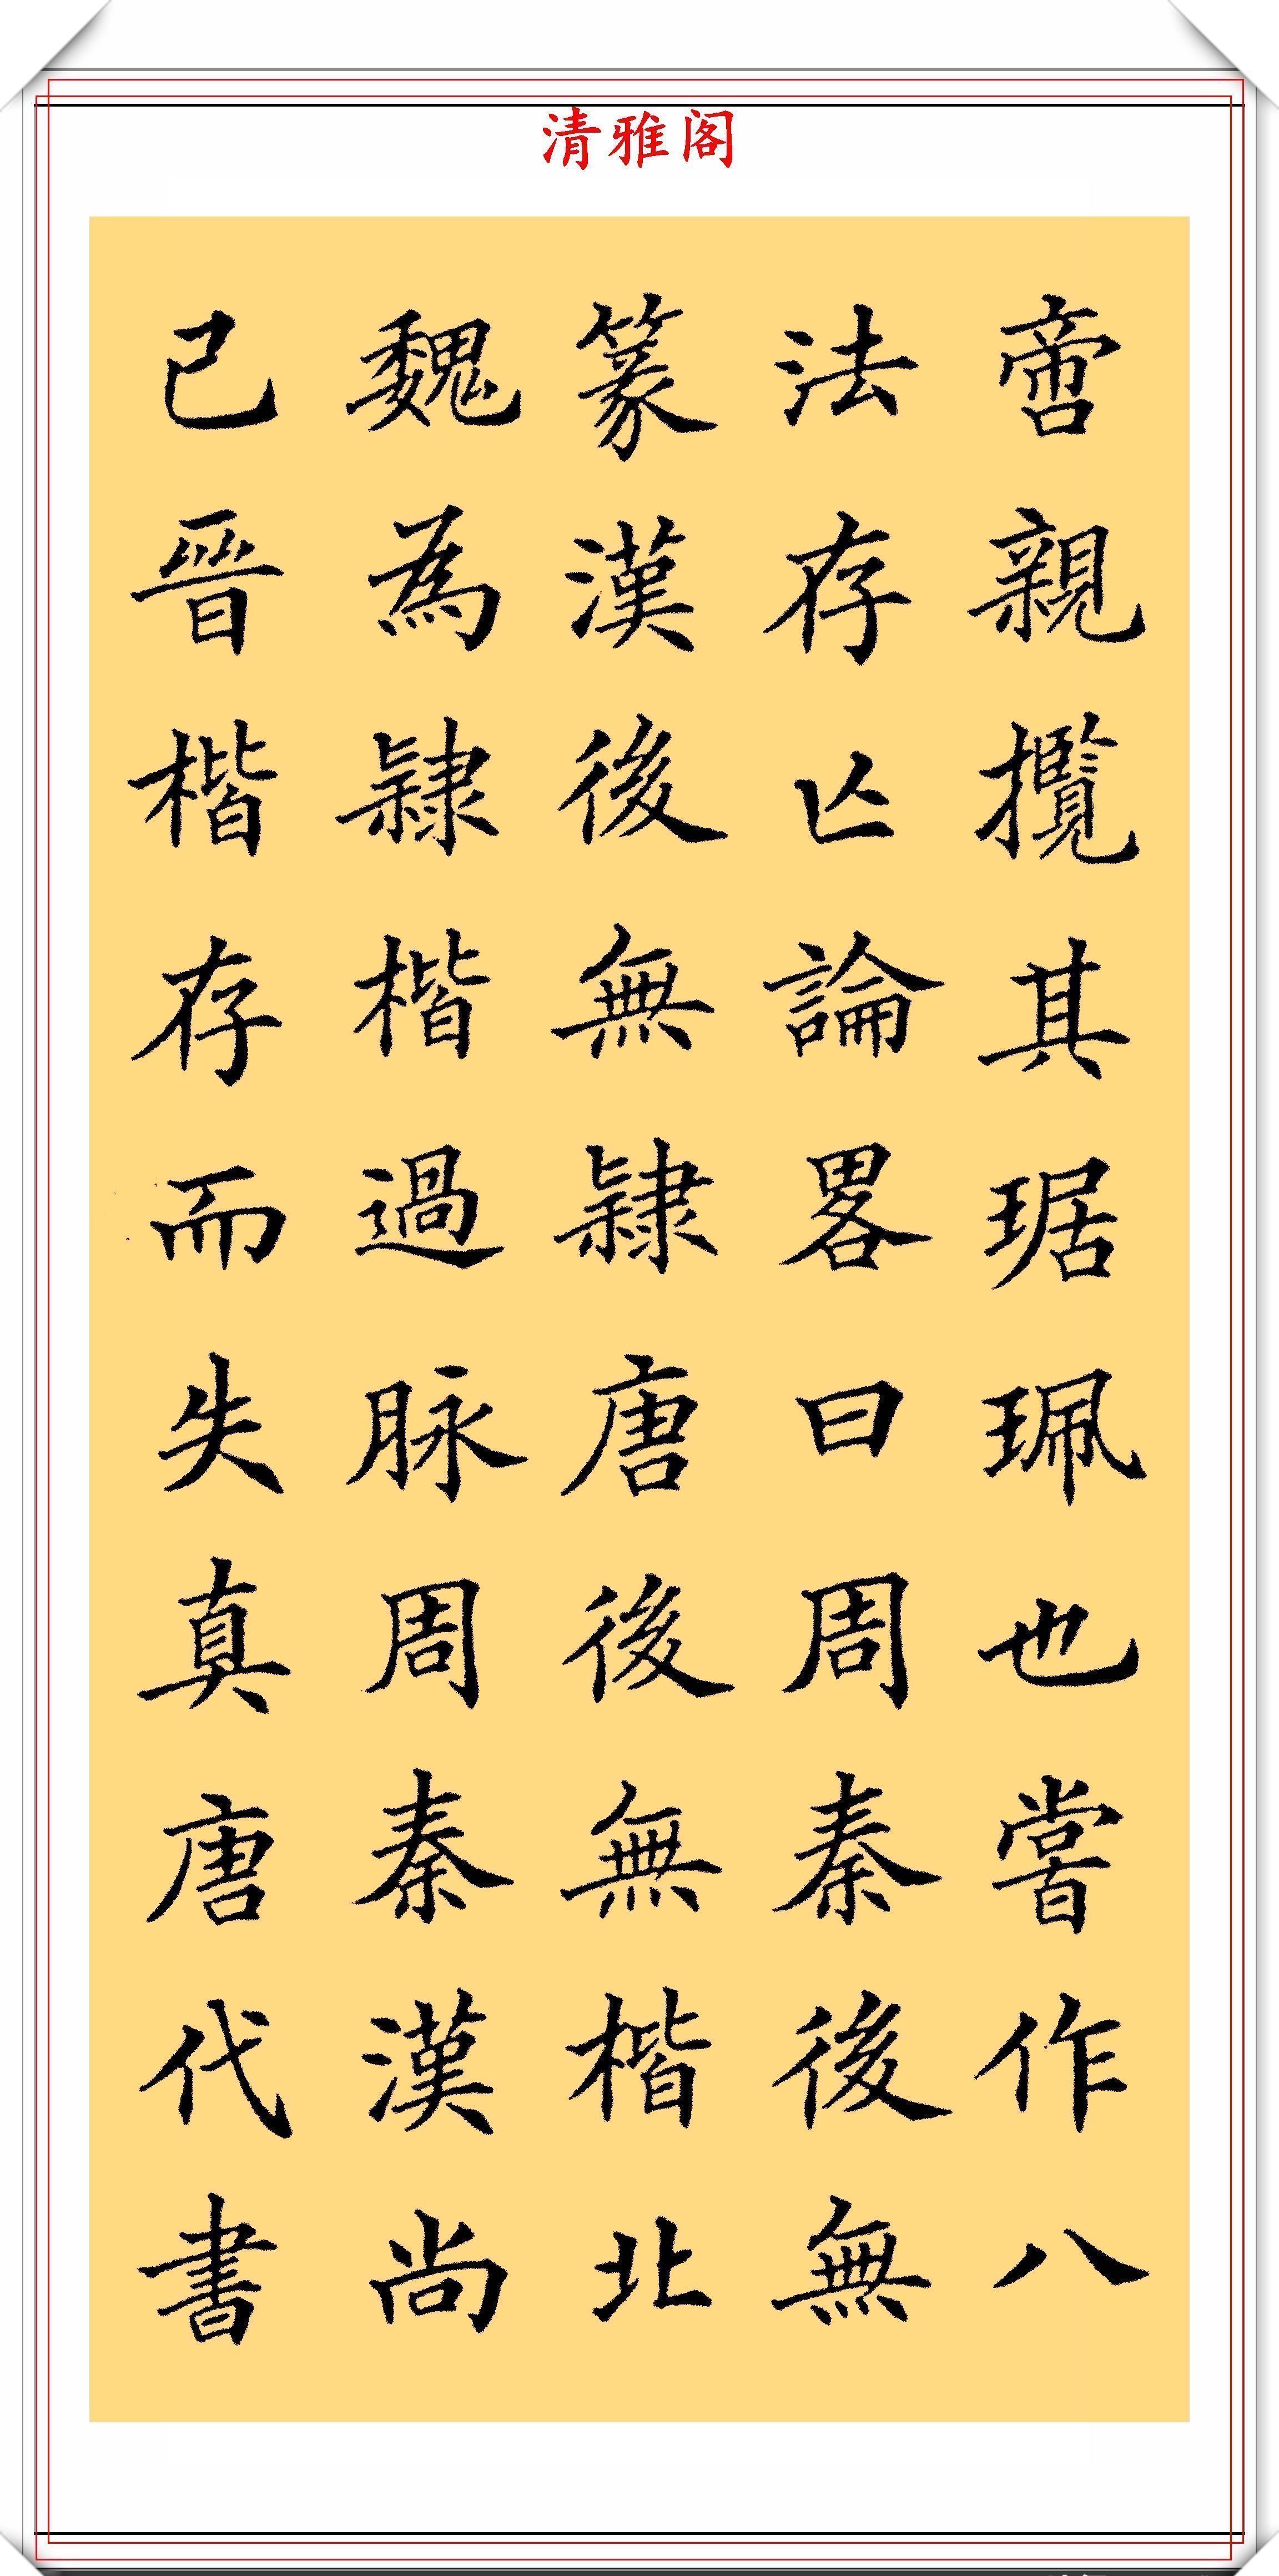 清雅阁
啻親攬其琚珮也嘗作八
法存亾論畧曰周秦後無
篆漢後無隸唐後無楷北
魏為隸楷過脉周秦漢尚
已晉楷存而失真唐代書